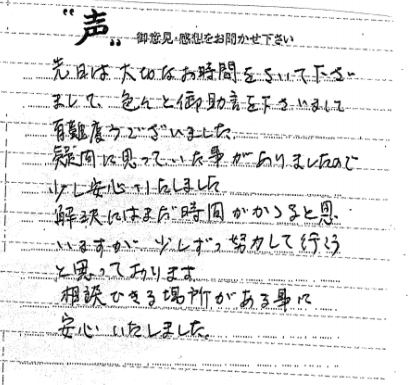 “声” 御意見・感想をお聞かせ下さい
先日は大切なお時間をさいて下さい
まして、色々と御助言を下さいまして
有難度うございました。
疑問に思っていた事がありましたので
少し安心いたしました
解決にはまだ時間がかゝると思
いますが、少しずつ努力して行こう
と思っております。
相談できる場所がある事に
安心いたしました。